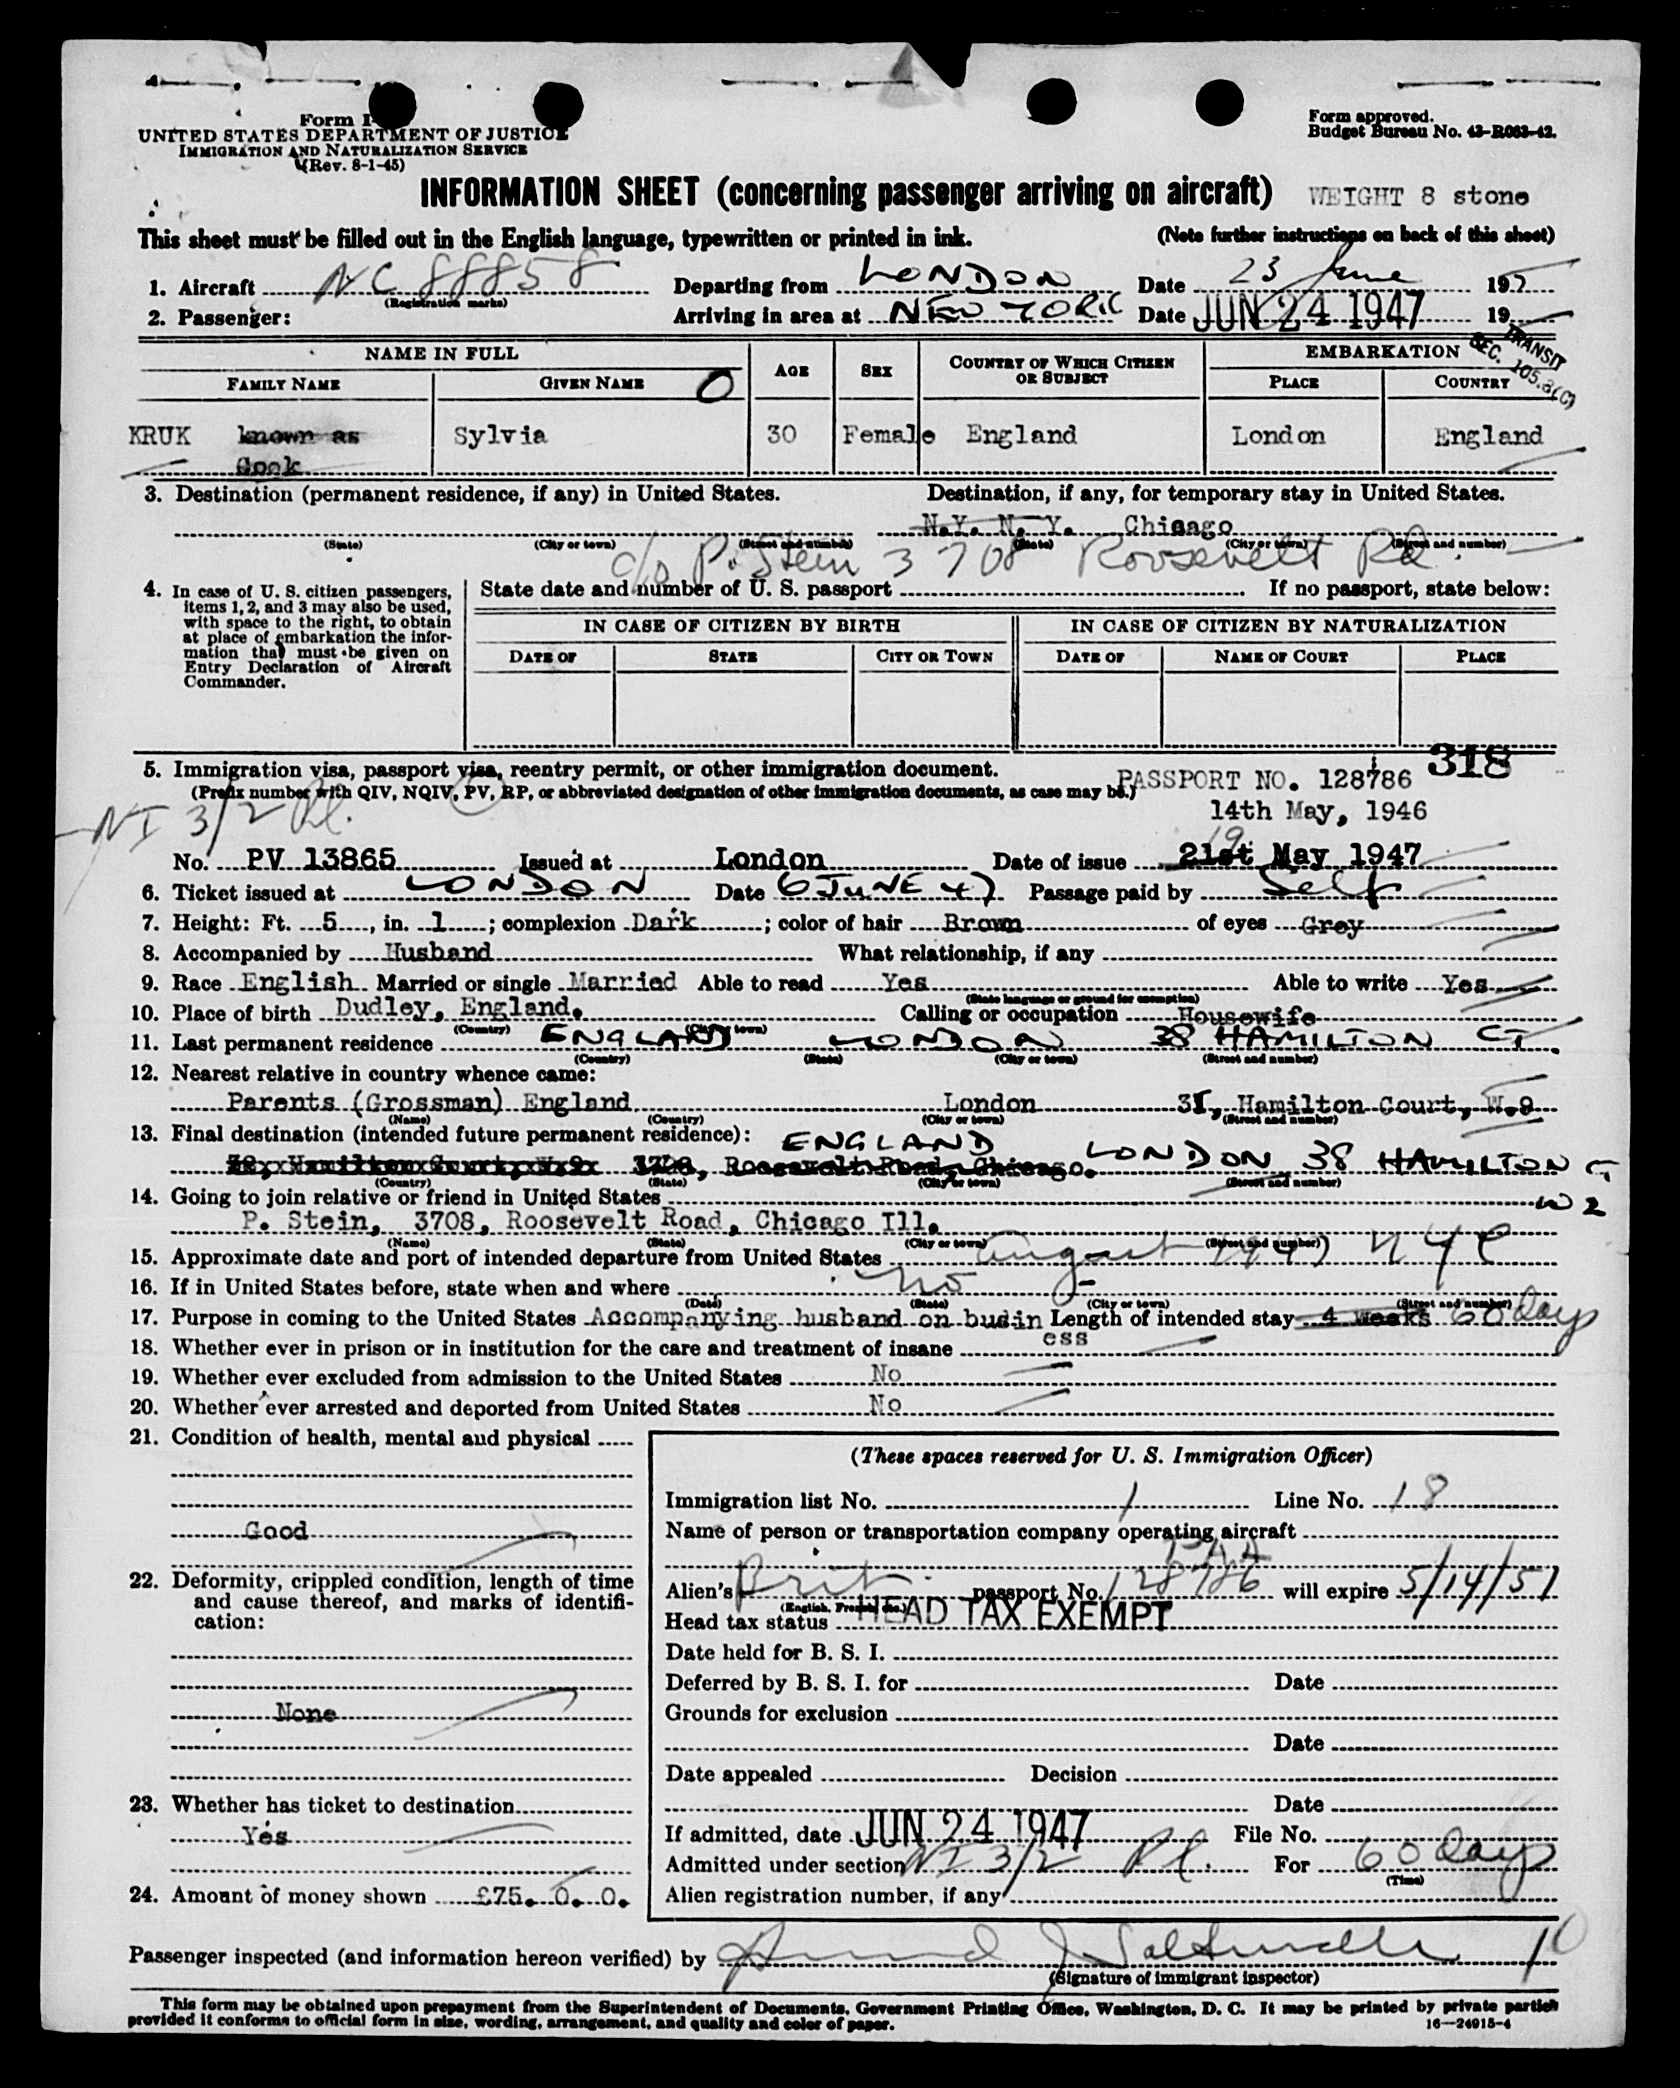 Form I-
UNITED STATES DEPARTMENT OF JUSTICE
IMMIGRATION AND NATURALIZATION SERVICE
(Rev. 8-1-45)
Form approved.
Budget Bureau No. 43-R063-42.
INFORMATION SHEET (concerning passenger arriving on aircraft) WEIGHT 8 stone
This sheet must be filled out in the English language, typewritten or printed in ink. (Note further instructions on back of this sheet)
1. Aircraft NC 88858 Departing from LONDON Date 23 June 19
(Registration marks)
2. Passenger: Arriving in area at NEW YORK Date JUN 24 1947 19
TRANSIT
SEC. 105.3(C)
NAME IN FULL AGE SEX COUNTRY OF WHICH CITIZEN OR SUBJECT EMBARKATION
FAMILY NAME GIVEN NAME O PLACE COUNTRY
KRUK known as Sylvia 30 Female England London England
Cook
3. Destination (permanent residence, if any) in United States. Destination, if any, for temporary stay in United States.
N.Y. N.Y. Chicago
(State) (City or town) (Street and number) (State) (City or town) (Street and number)
c/o P. Stein 3708 Roosevelt Rd.
4. In case of U. S. citizen passengers, items 1, 2, and 3 may also be used, with space to the right, to obtain at place of embarkation the information that must be given on Entry Declaration of Aircraft Commander.
State date and number of U. S. passport If no passport, state below:
IN CASE OF CITIZEN BY BIRTH IN CASE OF CITIZEN BY NATURALIZATION
DATE OF STATE CITY OR TOWN DATE OF NAME OF COURT PLACE
5. Immigration visa, passport visa, reentry permit, or other immigration document. 318
(Prefix number with QIV, NQIV, PV, RP, or abbreviated designation of other immigration documents, as case may be.) PASSPORT NO. 128786
14th May, 1946
NI 3/2 Pl.
19
No. PV 13865 Issued at London Date of issue 21st May 1947
6. Ticket issued at LONDON Date 6 JUNE 47 Passage paid by Self
7. Height: Ft. 5, in. 1; complexion Dark; color of hair Brown of eyes Grey
8. Accompanied by Husband What relationship, if any
9. Race English Married or single Married Able to read Yes Able to write Yes
(State language or ground for exemption)
10. Place of birth Dudley, England. Calling or occupation Housewife
(Country) (City or town)
11. Last permanent residence ENGLAND LONDON 38 HAMILTON CT.
(Country) (State) (City or town) (Street and number)
12. Nearest relative in country whence came:
Parents (Grossman) England London Hamilton Court, W.9
(Name) (Country) (City or town) (Street and number)
13. Final destination (intended future permanent residence): ENGLAND
3708, Roosevelt Road, Chicago. LONDON 38 HAMILTON CT
(Country) (State) (City or town) (Street and number)
W 2
14. Going to join relative or friend in United States
P. Stein, 3708, Roosevelt Road, Chicago Ill.
(Name) (State) (City or town) (Street and number)
15. Approximate date and port of intended departure from United States August 1947 NYC
16. If in United States before, state when and where No -
(Date) (State) (City or town) (Street and number)
17. Purpose in coming to the United States Accompanying husband on busin Length of intended stay 4 weeks 60 days
ess
18. Whether ever in prison or in institution for the care and treatment of insane
19. Whether ever excluded from admission to the United States No
20. Whether ever arrested and deported from United States No
21. Condition of health, mental and physical
Good
22. Deformity, crippled condition, length of time and cause thereof, and marks of identification:
None
23. Whether has ticket to destination
Yes
24. Amount of money shown £75. 0. 0.
(These spaces reserved for U. S. Immigration Officer)
Immigration list No. 1 Line No. 18
Name of person or transportation company operating aircraft
PAA
Alien's Brit. passport No. 128786 will expire 5/14/51
(English, French, etc.)
Head tax status HEAD TAX EXEMPT
Date held for B. S. I.
Deferred by B. S. I. for Date
Grounds for exclusion
Date
Date appealed Decision
Date
If admitted, date JUN 24 1947 File No.
Admitted under section NI 3/2 Pl. For 60 days
(Time)
Alien registration number, if any
Passenger inspected (and information hereon verified) by
(Signature of immigrant inspector)
This form may be obtained upon prepayment from the Superintendent of Documents, Government Printing Office, Washington, D. C. It may be printed by private parties
provided it conforms to official form in size, wording, arrangement, and quality and color of paper. 16—24915-4